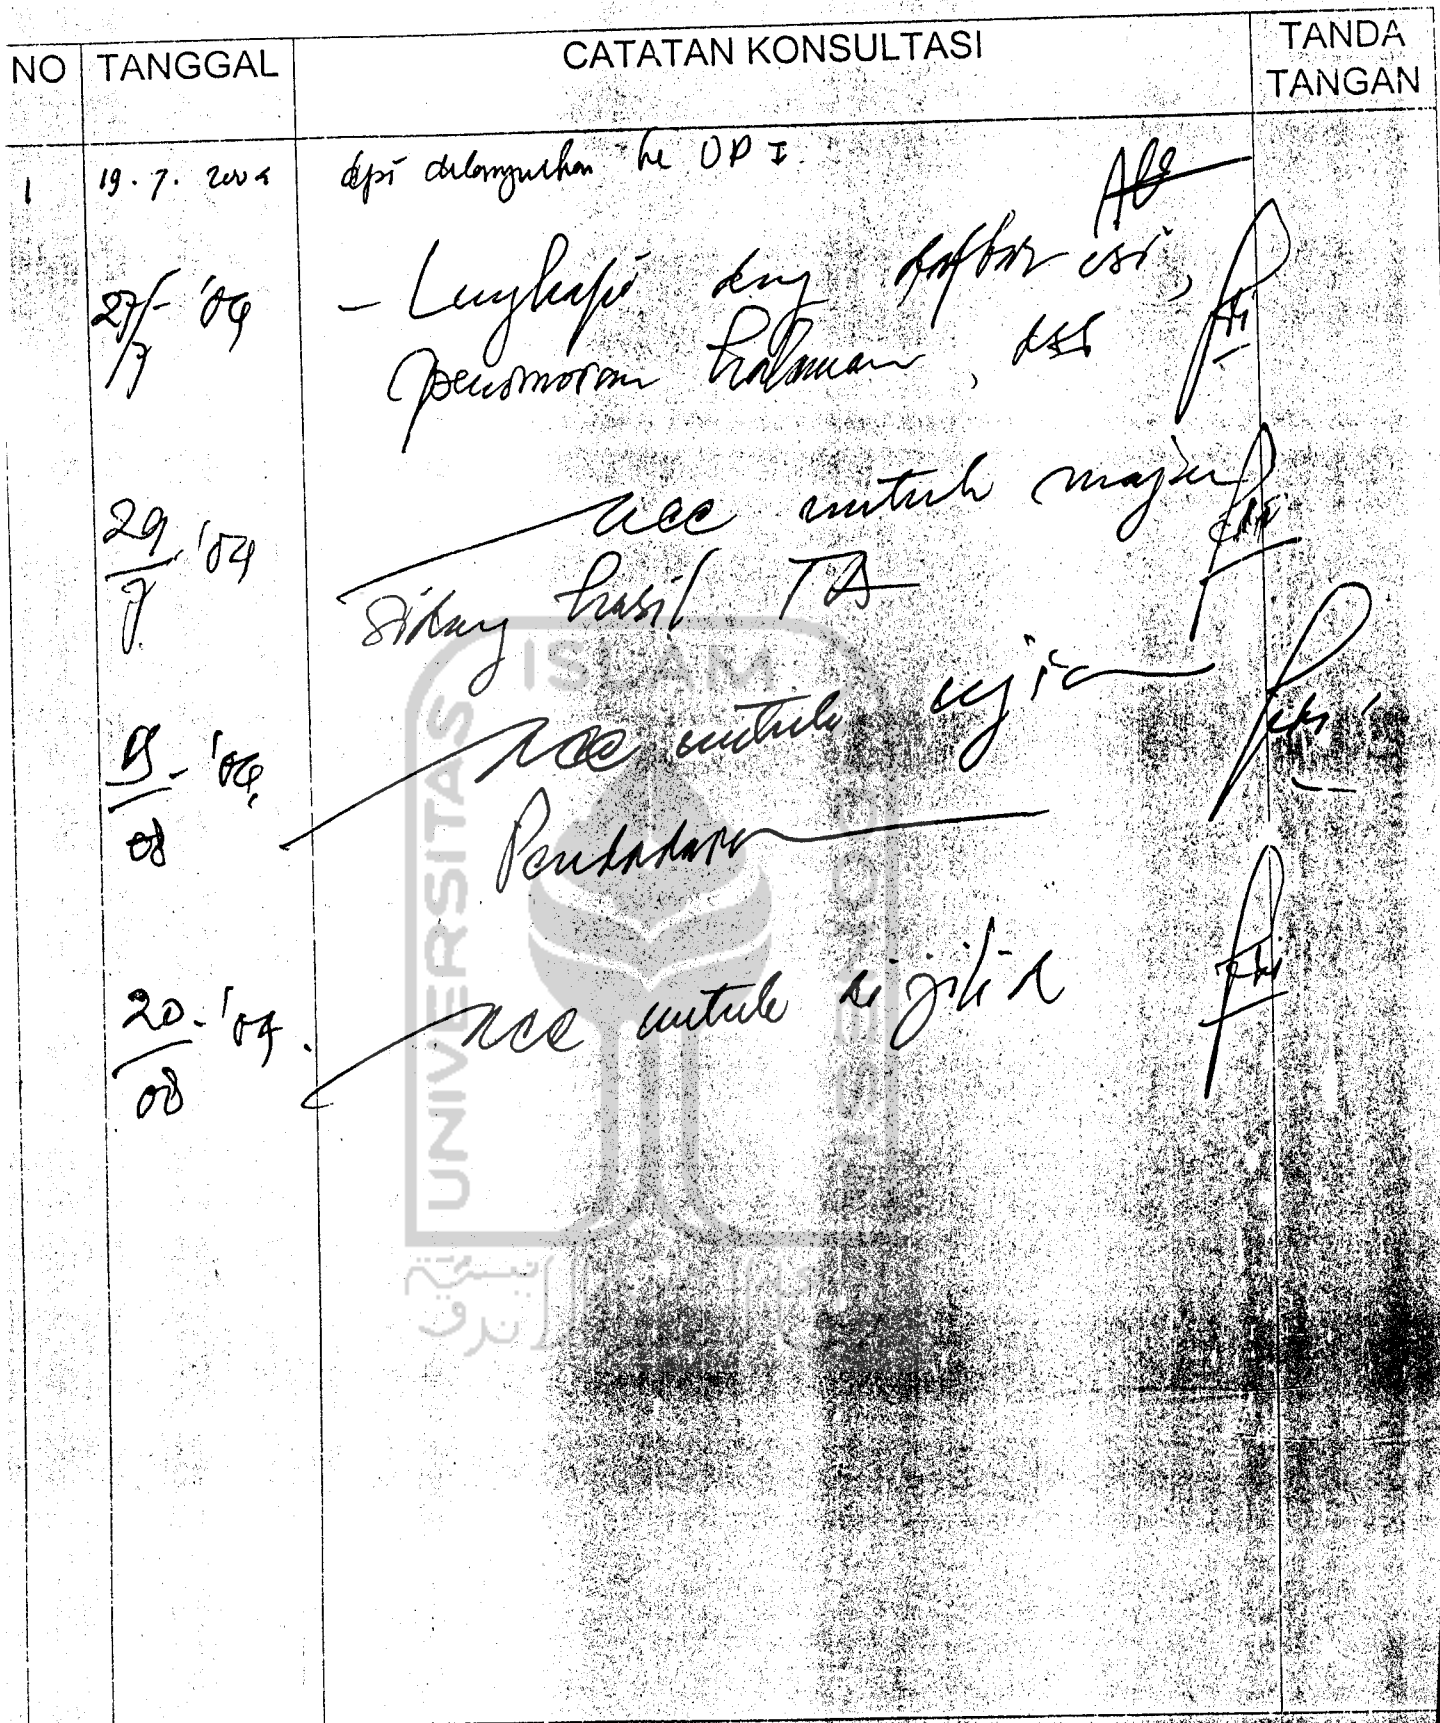 NO TANGGAL CATATAN KONSULTASI TANDA TANGAN
1 19. 7. 2004 dpt dilanjutkan ke DP I.
27/7 - '04 - Lengkapi dng daftar isi,
penomoran halaman, dll
29/7 - '04 acc untuk maju
sidang hasil TA
- '04 acc untuk ujian
08 Pendadaran
20/08 - '04. acc untuk dijilid
UNIVERSITAS
ISLAM
INDONESIA